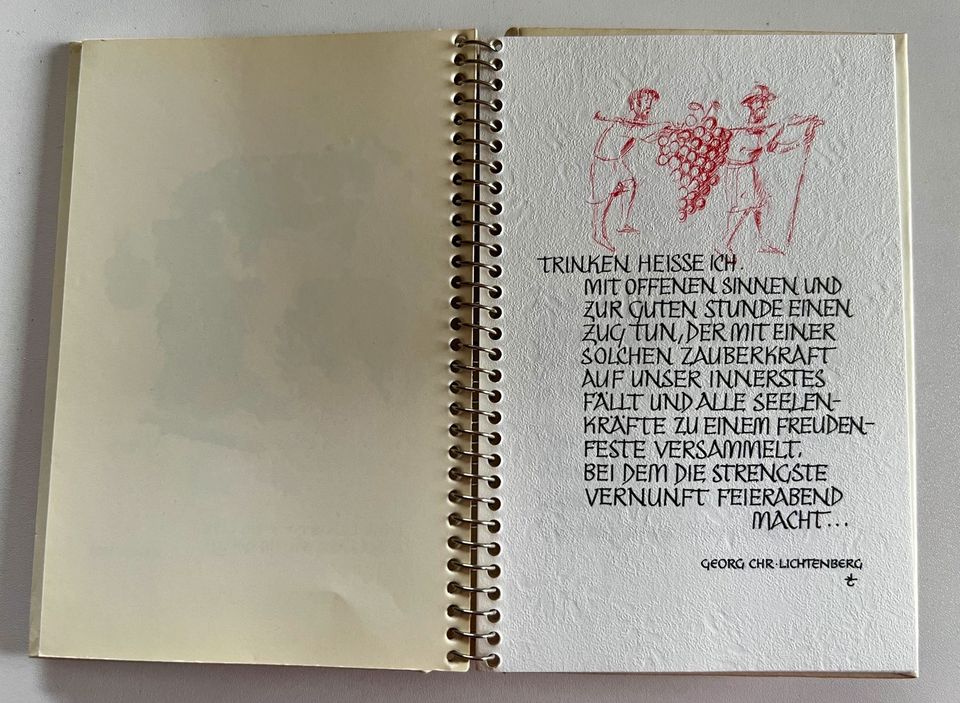 TRINKEN HEISSE ICH.
MIT OFFENEN SINNEN UND
ZUR GUTEN STUNDE EINEN
ZUG TUN, DER MIT EINER
SOLCHEN ZAUBERKRAFT
AUF UNSER INNERSTES
FÄLLT UND ALLE SEELEN-
KRÄFTE ZU EINEM FREUDEN-
FESTE VERSAMMELT.
BEI DEM DIE STRENGSTE
VERNUNFT FEIERABEND
MACHT...
GEORG CHR. LICHTENBERG